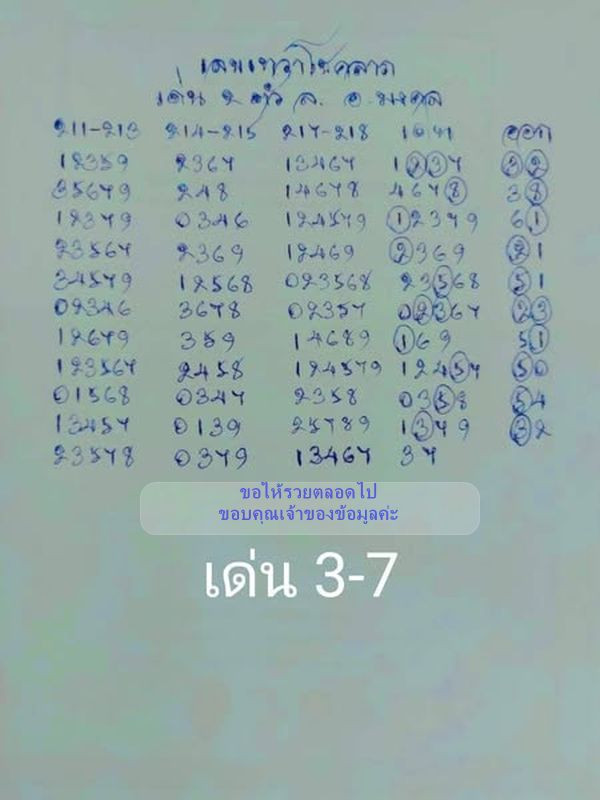 เลขเทวาโชคลาภ
เด่น 2 ตัว ล. อ.มงคล
211-213 214-215 217-218 เด่น ออก
12359 2367 13467 1237 32
35679 248 14678 4678 38
12379 0346 124579 12379 61
23567 2369 12469 2369 21
34579 12568 023568 23568 51
02346 3678 02357 02367 23
12679 359 14689 169 51
123567 2458 124579 12457 50
01568 0347 2358 0358 54
13457 0139 25789 1379 32
23578 0379 13467 37
ขอให้รวยตลอดไป
ขอบคุณเจ้าของข้อมูลค่ะ
เด่น 3-7